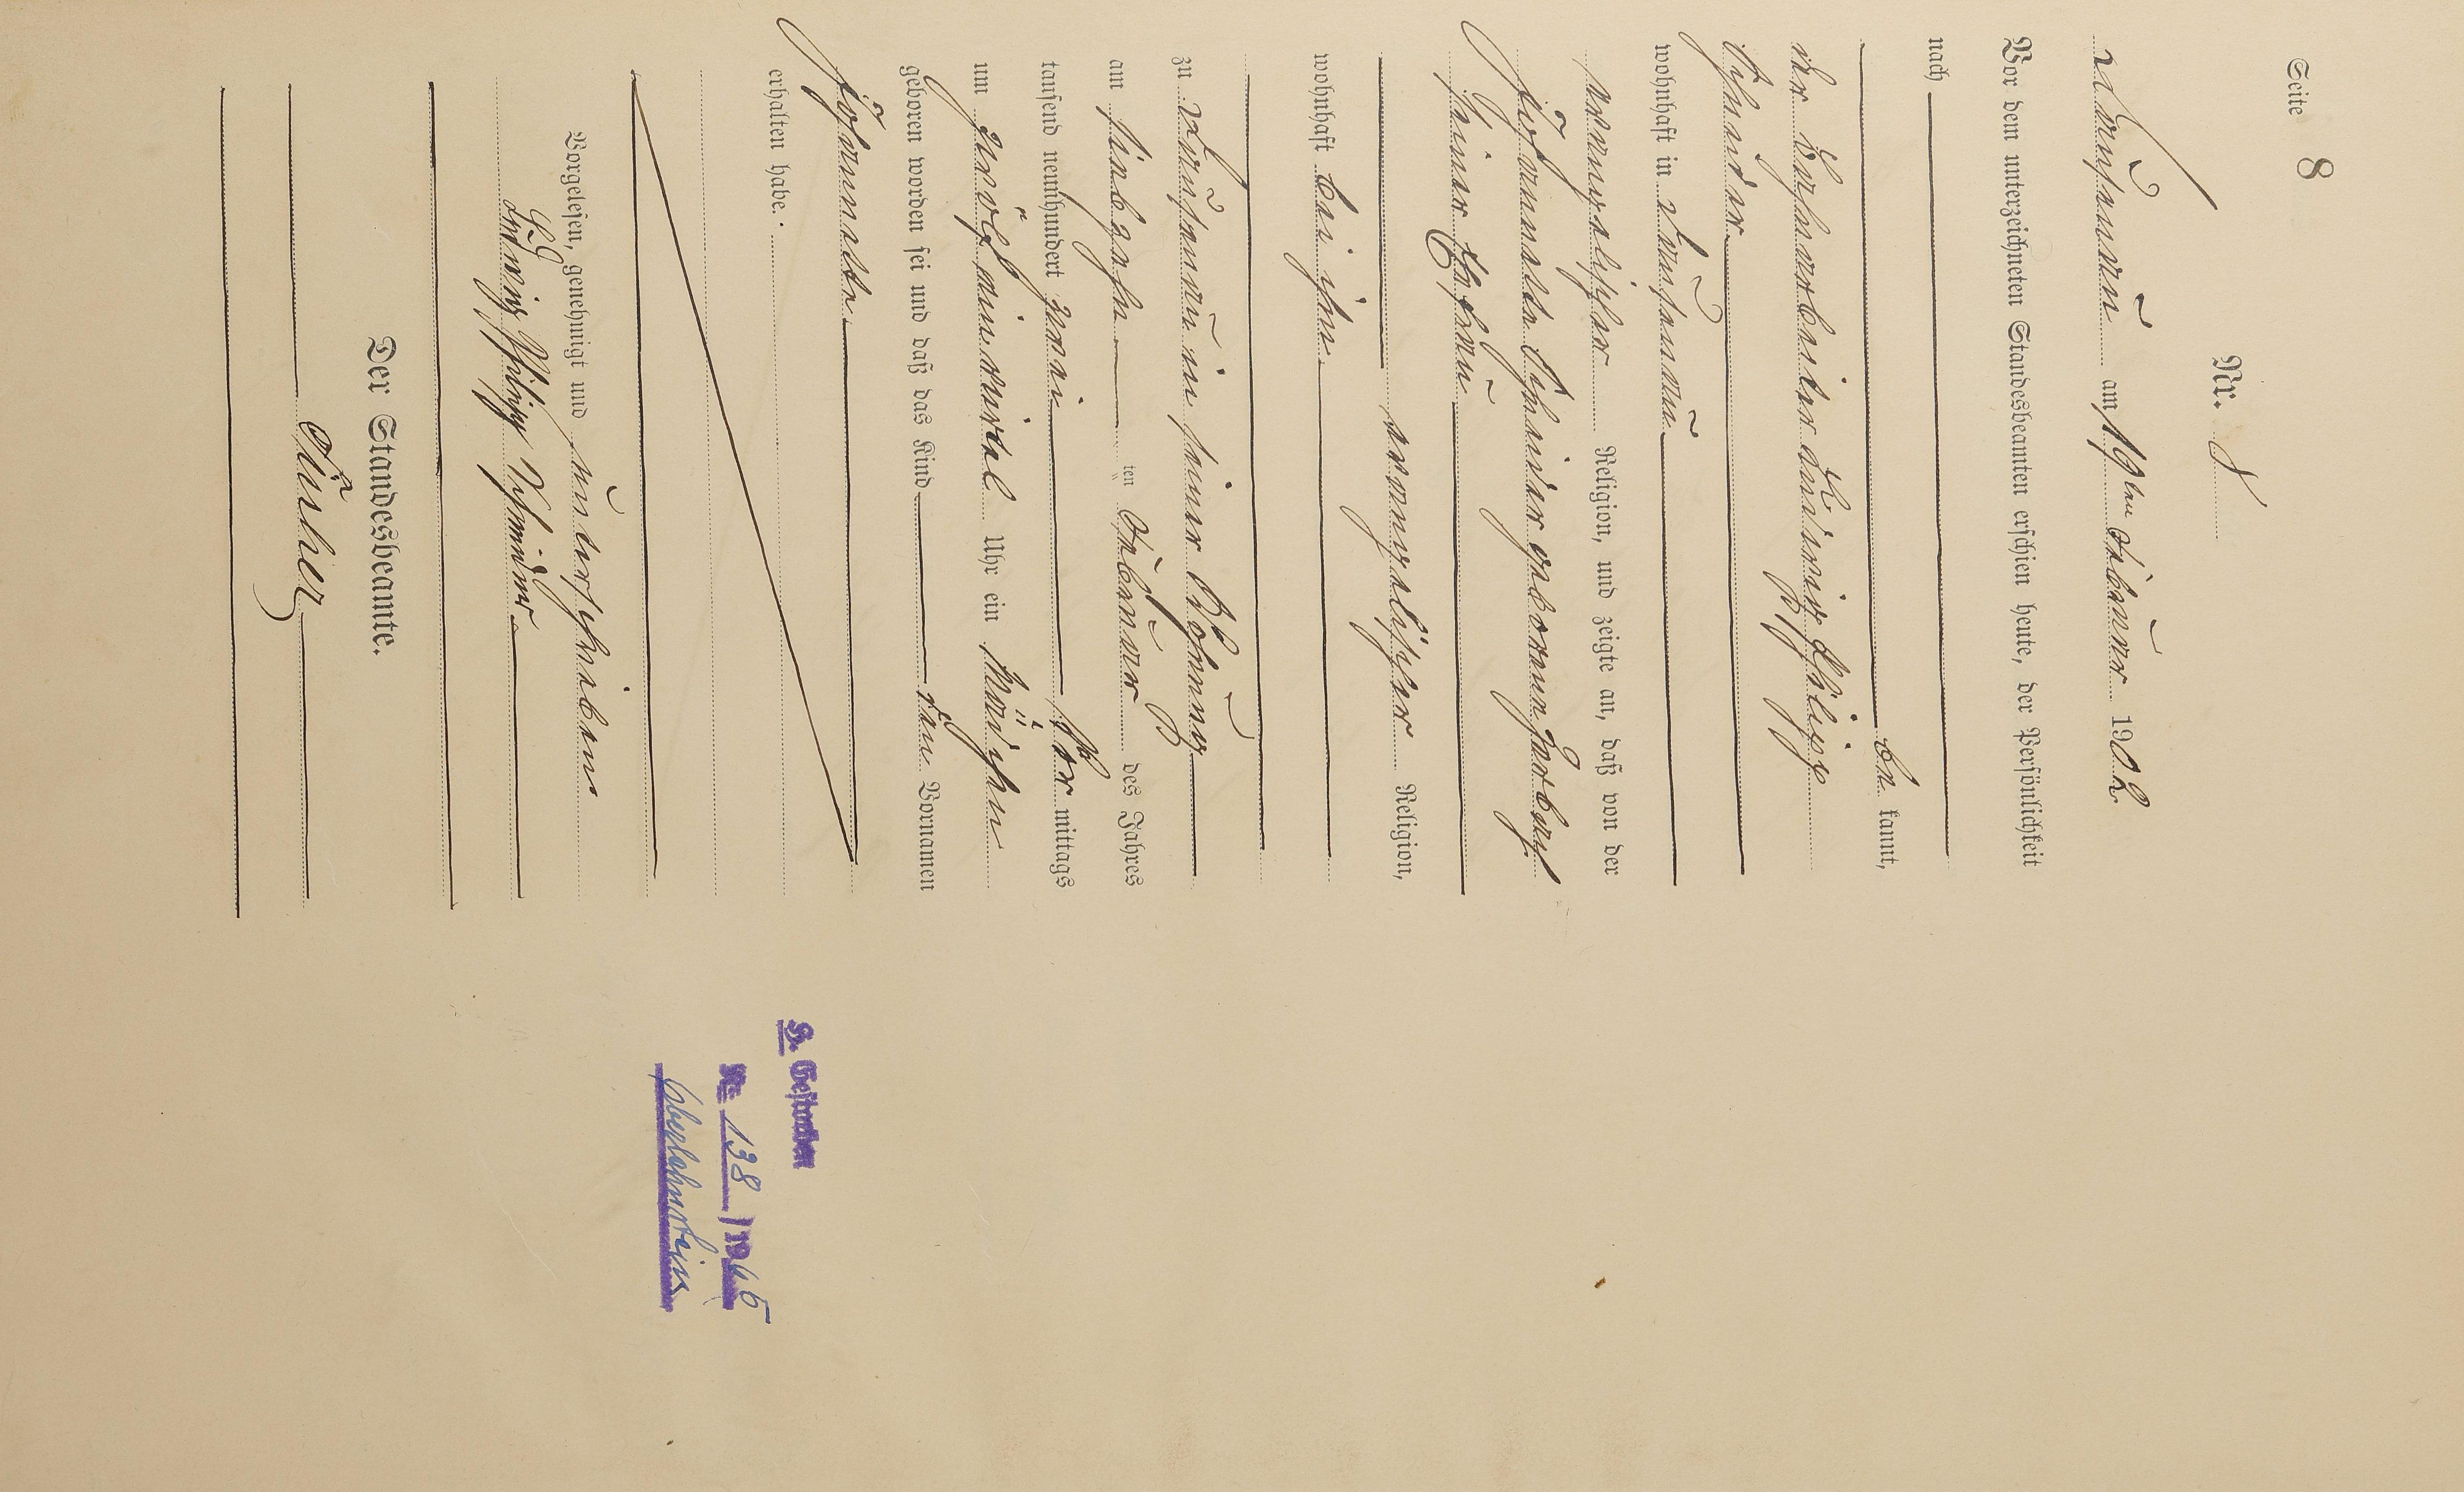 Seite 8
Nr. 8
Dausenau am 19ten Februar 1902
Vor dem unterzeichneten Standesbeamten erschien heute, der Persönlichkeit
nach
be kannt,
der Bahnarbeiter Ludwig Philipp
Schneider
wohnhaft in Dausenau
evangelischer Religion, und zeigte an, daß von der
Johannette Schneider geborenen
seiner Ehefrau
evangelischer Religion,
wohnhaft bei ihm
zu Dausenau in seiner Wohnung
am siebzehn ten Februar des Jahres
tausend neunhundert zwei Vor mittags
um zwölf ein viertel Uhr ein Mädchen
geboren worden sei und daß das Kind den Vornamen
Johannette
erhalten habe.
Vorgelesen, genehmigt und unterschrieben
Ludwig Philipp Schneider
Der Standesbeamte.
Linker
G. Gestorben
Nr. 138/1965
Oberlahnstein